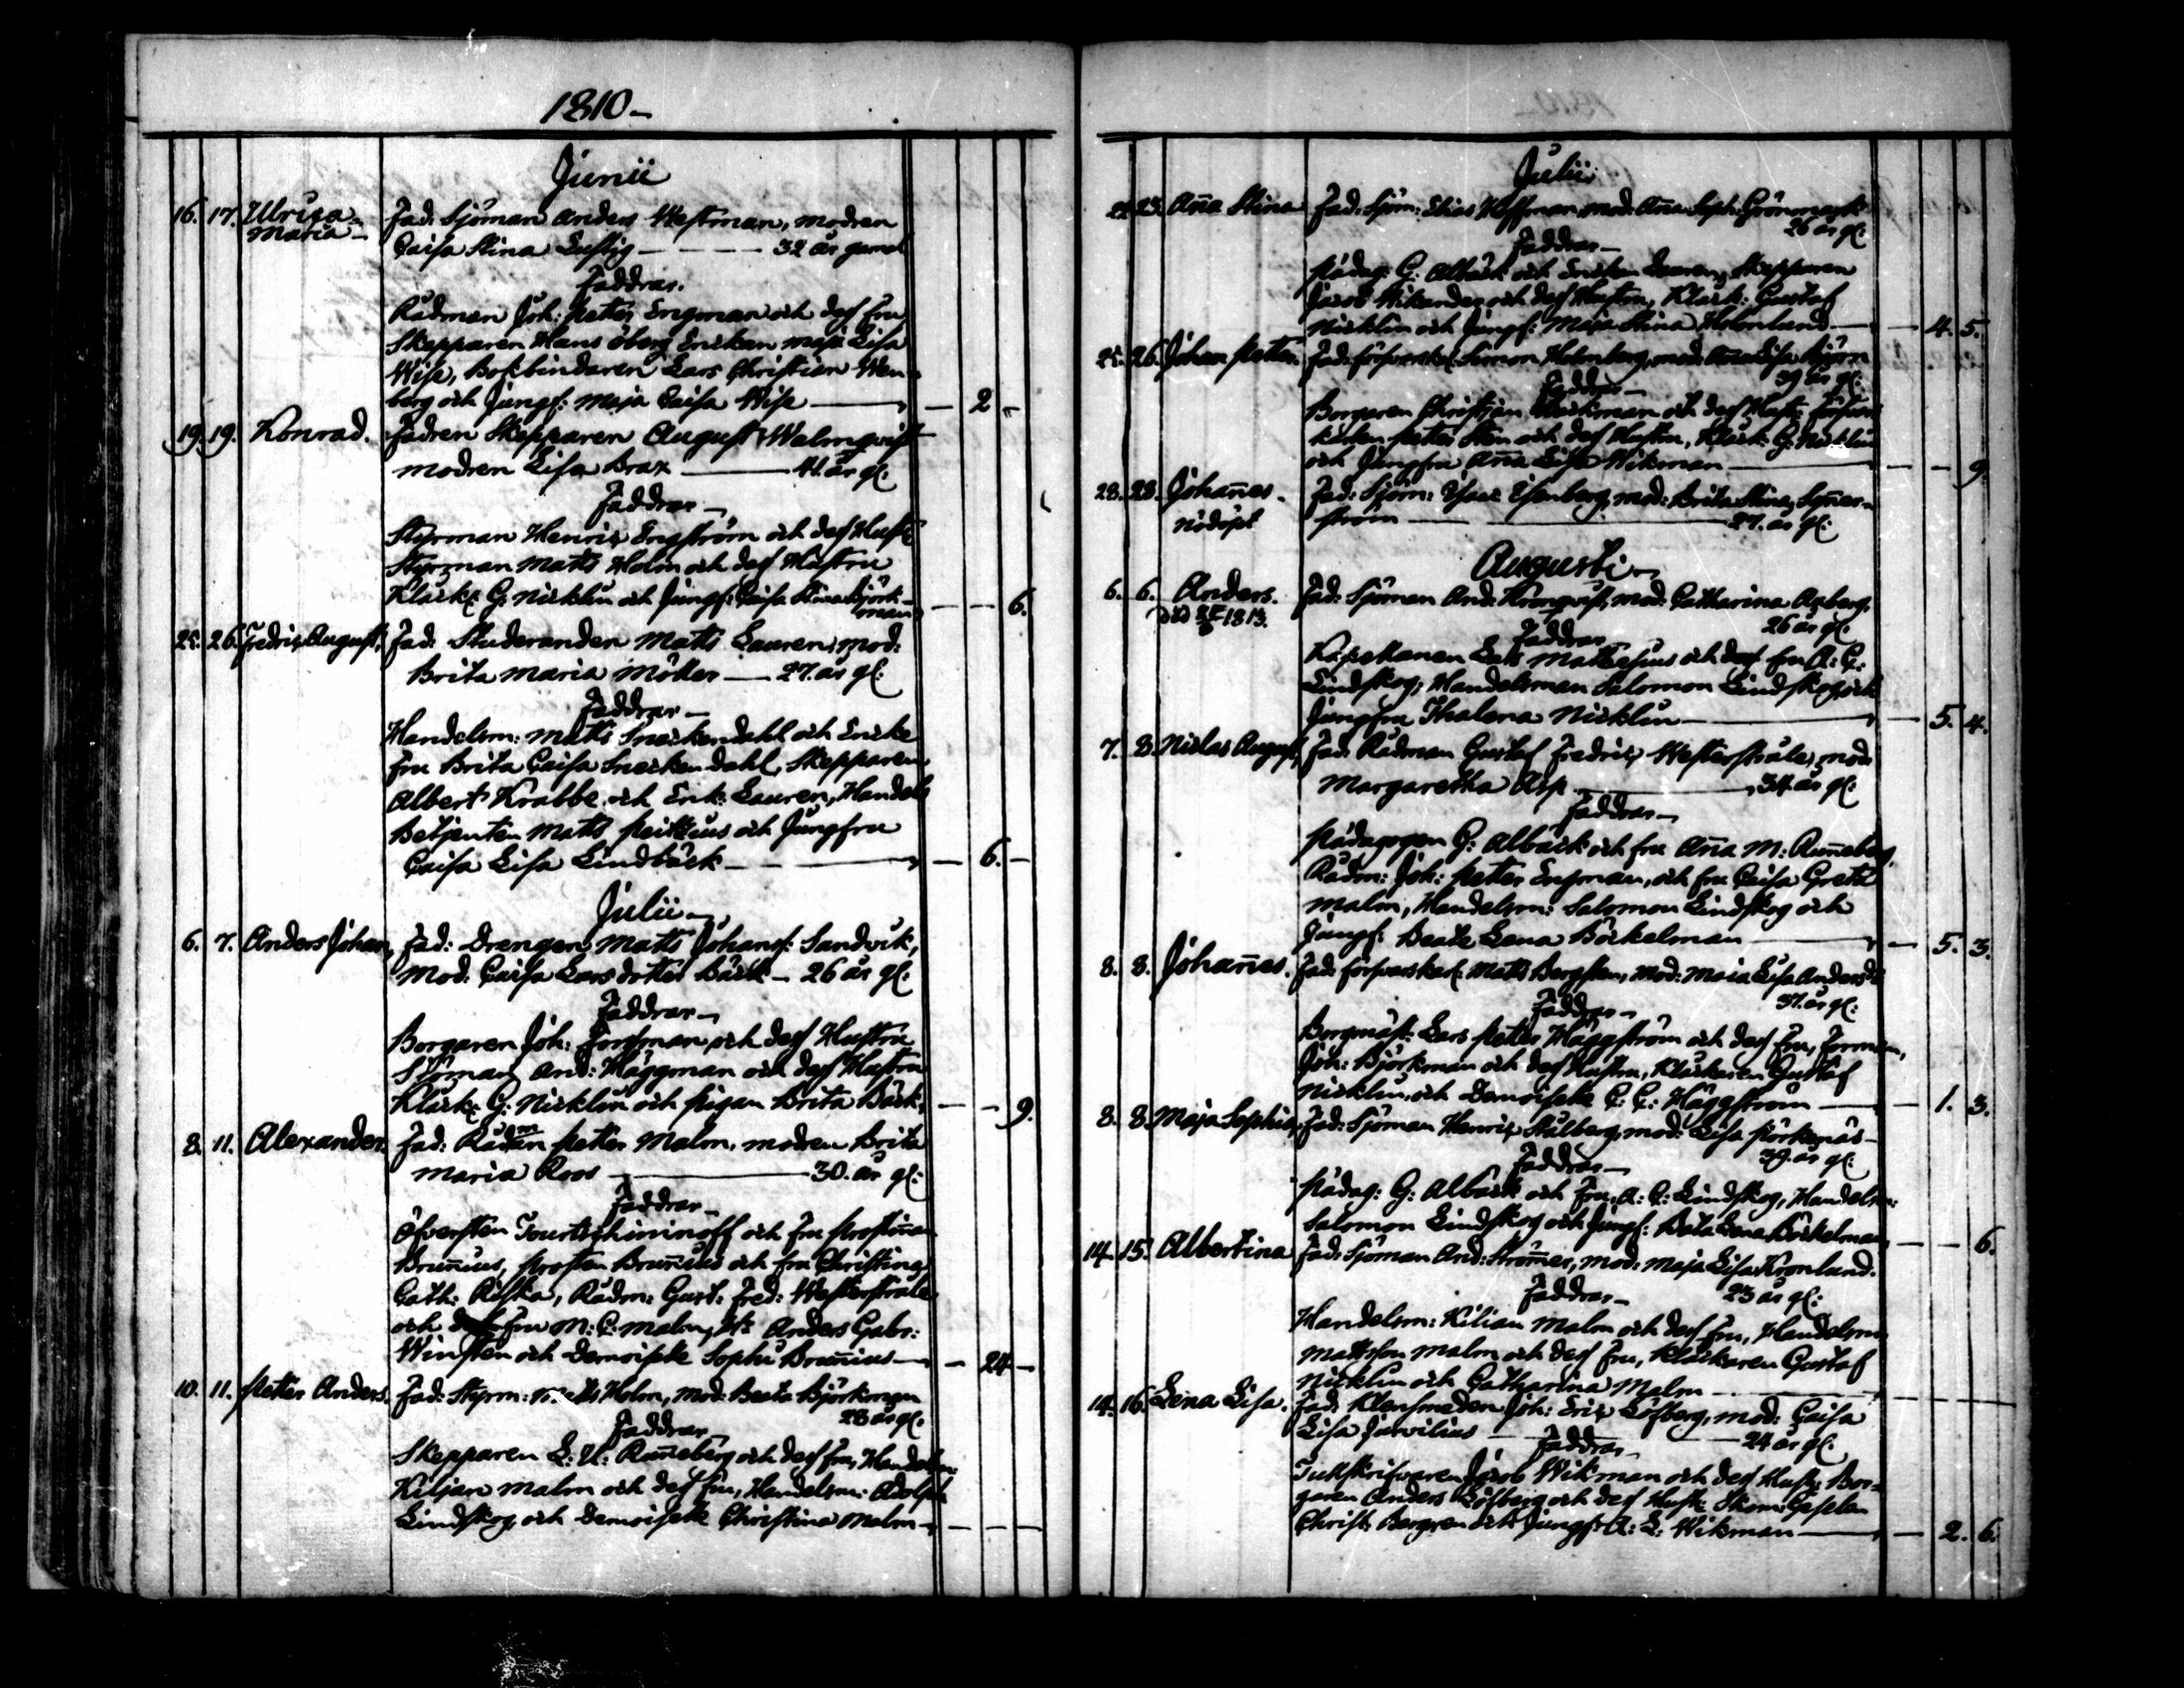 1810-
Junii
16. 17. Ulrica Fad: Sjöman Anders Westman, modren
Maria Caisa Stina Lustig 32 år gamal
Faddrar.
Rådman Joh: Petter Engman och dess fru
Skepparen Hans Öberg Enckan Maja Lisa
Wise, Bokbindaren Lars Christian Wen-
berg och Jungf: Maja Caisa Wise - 2 -
19. 19. Konrad. Fadren Skepparen August Walmqvist
modren Lisa Brax 41. år gl:
Faddrar
Styrman Henric Engström och dess Hust:
Styrman Matts Holm och dess Hustru
Klock: G: Nicklin och Jungf: Caisa Stina Björk-
man - - 6.
25. 26. Fredric August, Fad: Studeranden Matts Lauren, mod:
Brita Maria Möller 27. år gl:
Faddrar
Handelsm: Matts Sneckendahl och Encke
fru Brita Caisa Sneckendahl, Skepparen
Albert Krabbe och Enk: Lauren, Handels
Betjenten Matts och Jungfru
Caisa Lisa Lindbäck - 6. -
Julii
6. 7. Anders Johan, Fad: Drengen Matts Johans: Sandvik,
Mod: Caisa Lars dotter Bäck - 26 år gl:
Faddrar
Borgaren Joh: Forsman och dess Hustru
Sjöman And: Häggman och dess Hustru
Klock: G: Nicklin och Pigan Brita Bäck, - - 9.
8. 11. Alexander. Fad: Rådman Petter Malm, modren Brita
Maria Roos 30. år gl:
Faddrar
Öfversten och fru Prostinnan
Brunnius, Prosten Brunnius och fru Christina
Cath: Riska, Rådm: Gust: Fred: Westerstråle
och fru M: C: Malm, Anders Gabr:
Winsten och Demoiselle Sophi Brunnius - 24 -
10. 11. Petter Anders. Fad: Styrm: Matts Holm, Mod: Beata Björkman
28 år gl:
Faddrar
Skepparen L: U: Runeberg och dess fru, Handelsm:
Kiljan Malm och dess fru, Handelsm: Adolph
Lindskog och Demoiselle Christina Malm - - -
Julii
22. 23. Aña Stina Fad: Sjöm: Elias Hoffman, mod: Aña Soph: Grönmark
26 år gl:
Faddrar
Pädag: G: Albäck och Enckan Lauren, Skepparen
Jacob Wikander och dess Hustru, Klock: Gustaf
Nicklin och Jungf: Maja Stina Holmlund - 4. 5.
25. 26. Johan Petter. Fad: försvarskarl: Simon Holmberg, mod: Aña Lisa Björn
39 år gl:
Faddrar
Borgaren Christian Björkman och dess Hust: försvars
karlen Petter Sten och dess Hustru, Klock: G: Nicklin
och Jungfru Aña Lisa Wikman - - 9
28. 28. Johañes. Fad: Sjöm: Isac Isenberg, mod: Brita Stina Syner-
Nöddöpt ström 27. år gl:
Augusti
6. 6. Anders. Fad: Sjöman And: Kronqvist, mod: Catharina Asberg.
död 1813. 26 år gl:
Faddrar
Kapellanen Erik Mathesius och dess fru A: C:
Lindskog, Handelsman Salomon Lindskog och
Jungfru Thalena Nicklin - 5. 4.
7. 8. Niclas August, Fad: Rådman Gustaf Fredric Westerstråle, mod:
Margaretha Asp 34. år gl:
Faddrar
Pädagogen G: Albäck och fru Aña M: Runeberg,
Rådm: Joh: Petter Engman, och fru Caisa Greta
Malm, Handelsm: Salomon Lindskog och
Jungf: Beate Lena Böckelman - 5. 3.
8. 8. Johañes. Fad: försvarskarl: Matts Bergsten, Mod: Maia Lisa Andersdr
37. år gl:
Faddrar
Borgmäst: Lars Petter Häggström och dess fru,
Joh: Björkman och dess Hustru, Klockaren Gustaf
Nicklin, och Demoiselle C: C: Häggström - 1. 3.
8. 8. Maja Sophia, Fad: Sjöman Henric Stålberg, mod: Lisa Björkenäs
39. år gl:
Faddrar
Pädag: G: Albäck och Fru A: C: Lindskog, Handelsm:
Salomon Lindskog och Jungf: Beata Lena Böckelman - - 6.
14. 15. Albertina Fad: Sjöman And: Strömer, mod: Maja Lisa Kronlund.
Faddrar 23 år gl:
Handelsm: Kilian Malm och dess fru, Handelsm:
Mattsson Malm och dess fru, Klockaren Gustaf
Nicklin och Catharina Malm - - -
14. 16. Lena Lisa. Fad: Klensmeden Joh: Eric Löfberg, mod: Caisa
Lisa Jarvilius 24 år gl:
Faddrar
Tullskrifvaren Jacob Wikman och dess Hust: Bor-
garen Anders Löfberg och dess Hust: Skom: Gesellen
Christ: Bergren och Jungf: A: L: Wikman - 2. 6.